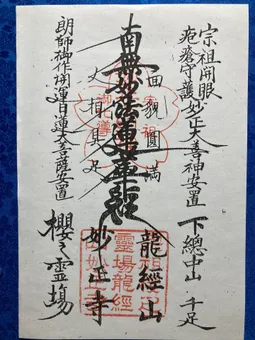 宗祖開眼
疱瘡守護
妙正大善神安置
下總中山 千足
龍經山
面貌圓満
南無妙法蓮華經
人相具足
妙正寺
朗師御作開運日蓮大菩薩安置
櫻之霊場
靈場龍經